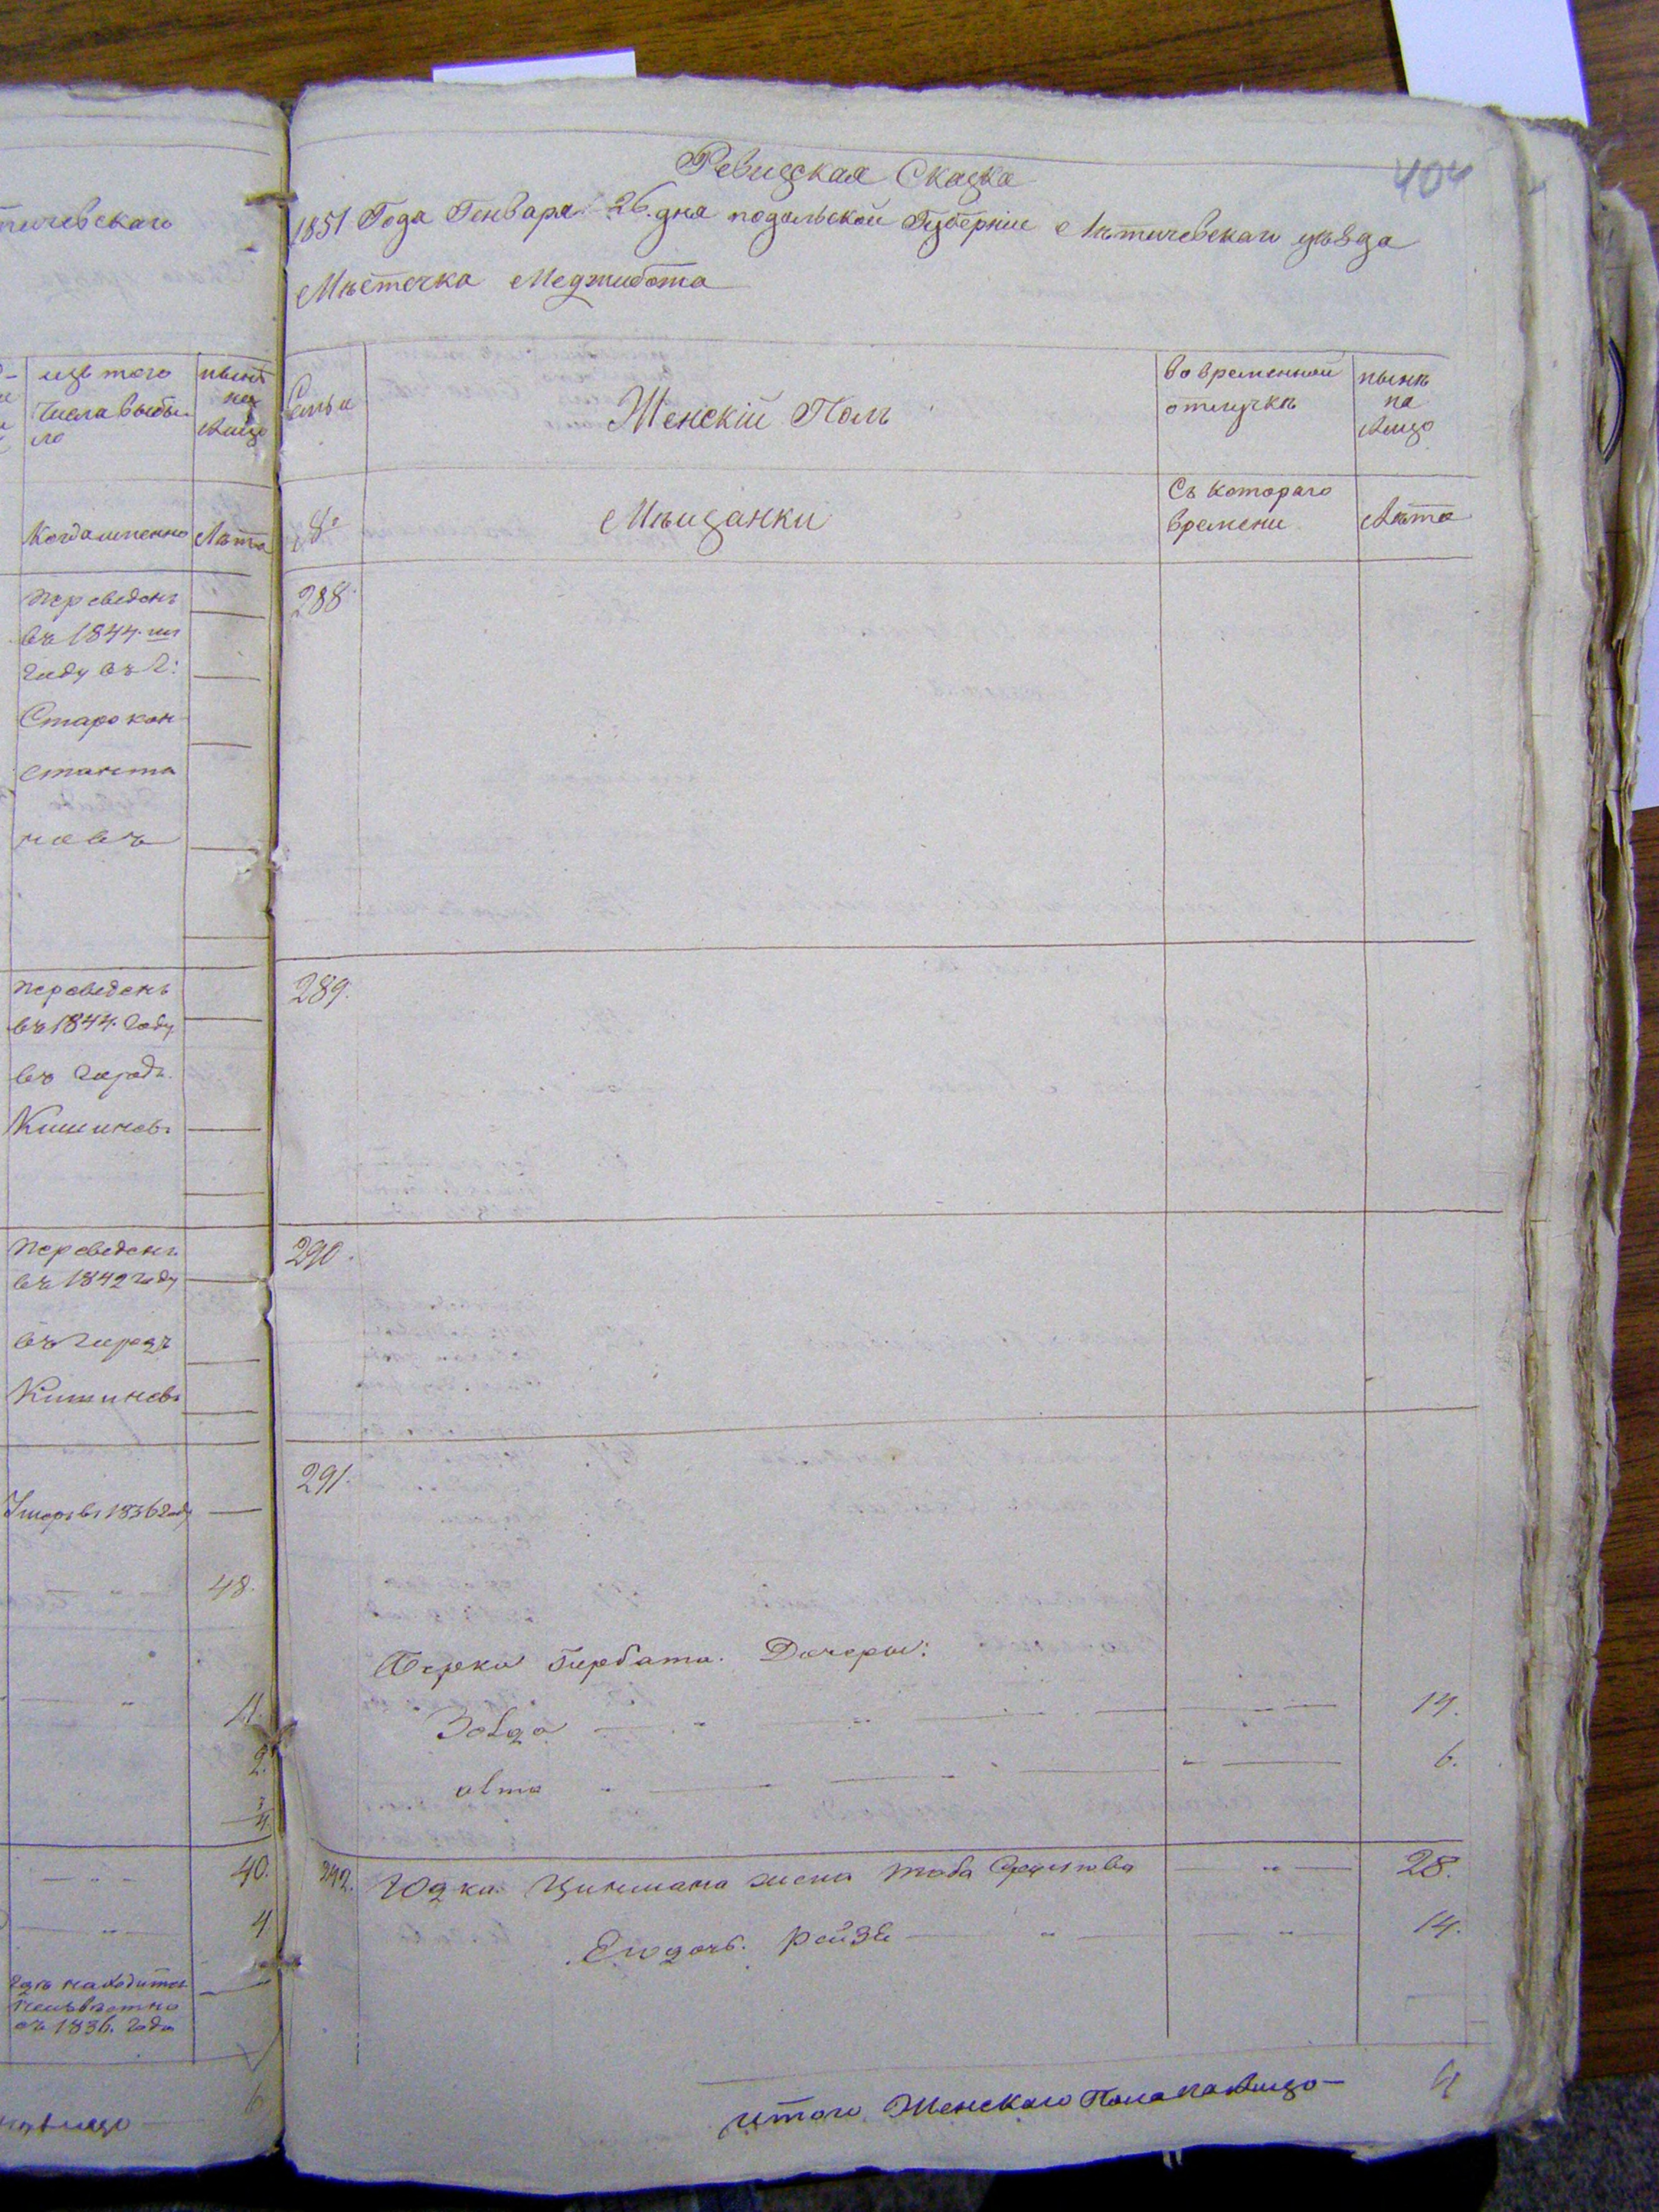 тичевскаго
изъ того
числа выбы
ло
нынѣ
на
лицо
Когда именно
Лѣта
Переведенъ
въ 1844.
году въ г:
Старокон
станти
новъ
Переведенъ
въ 1844. году
въ городъ
Кишиневъ
Переведенъ
въ 1842 году
въ городъ
Кишиневъ
Умеръ въ 1836 году
48.
11.
2.
40.
4
гдѣ находится
неизвѣстно
съ 1836. года
6
налицо
404
Ревизская Сказка
1851 Года Генваря 26. дня подольской Губерніи Лѣтичевскаго уѣзда
Мѣстечка Меджибожа
Семьи
Женскій Полъ
во временной
отлучкѣ
нынѣ
на
лицо
№
Мѣщанки
Съ котораго
времени
Лѣта
288.
289.
290.
291.
Берки Гербата. Дочеры:
14.
6.
292. Юдки Цинмана жена Таба 28.
Его дочь. Рейзя 14.
итого Женскаго Пола налицо 4